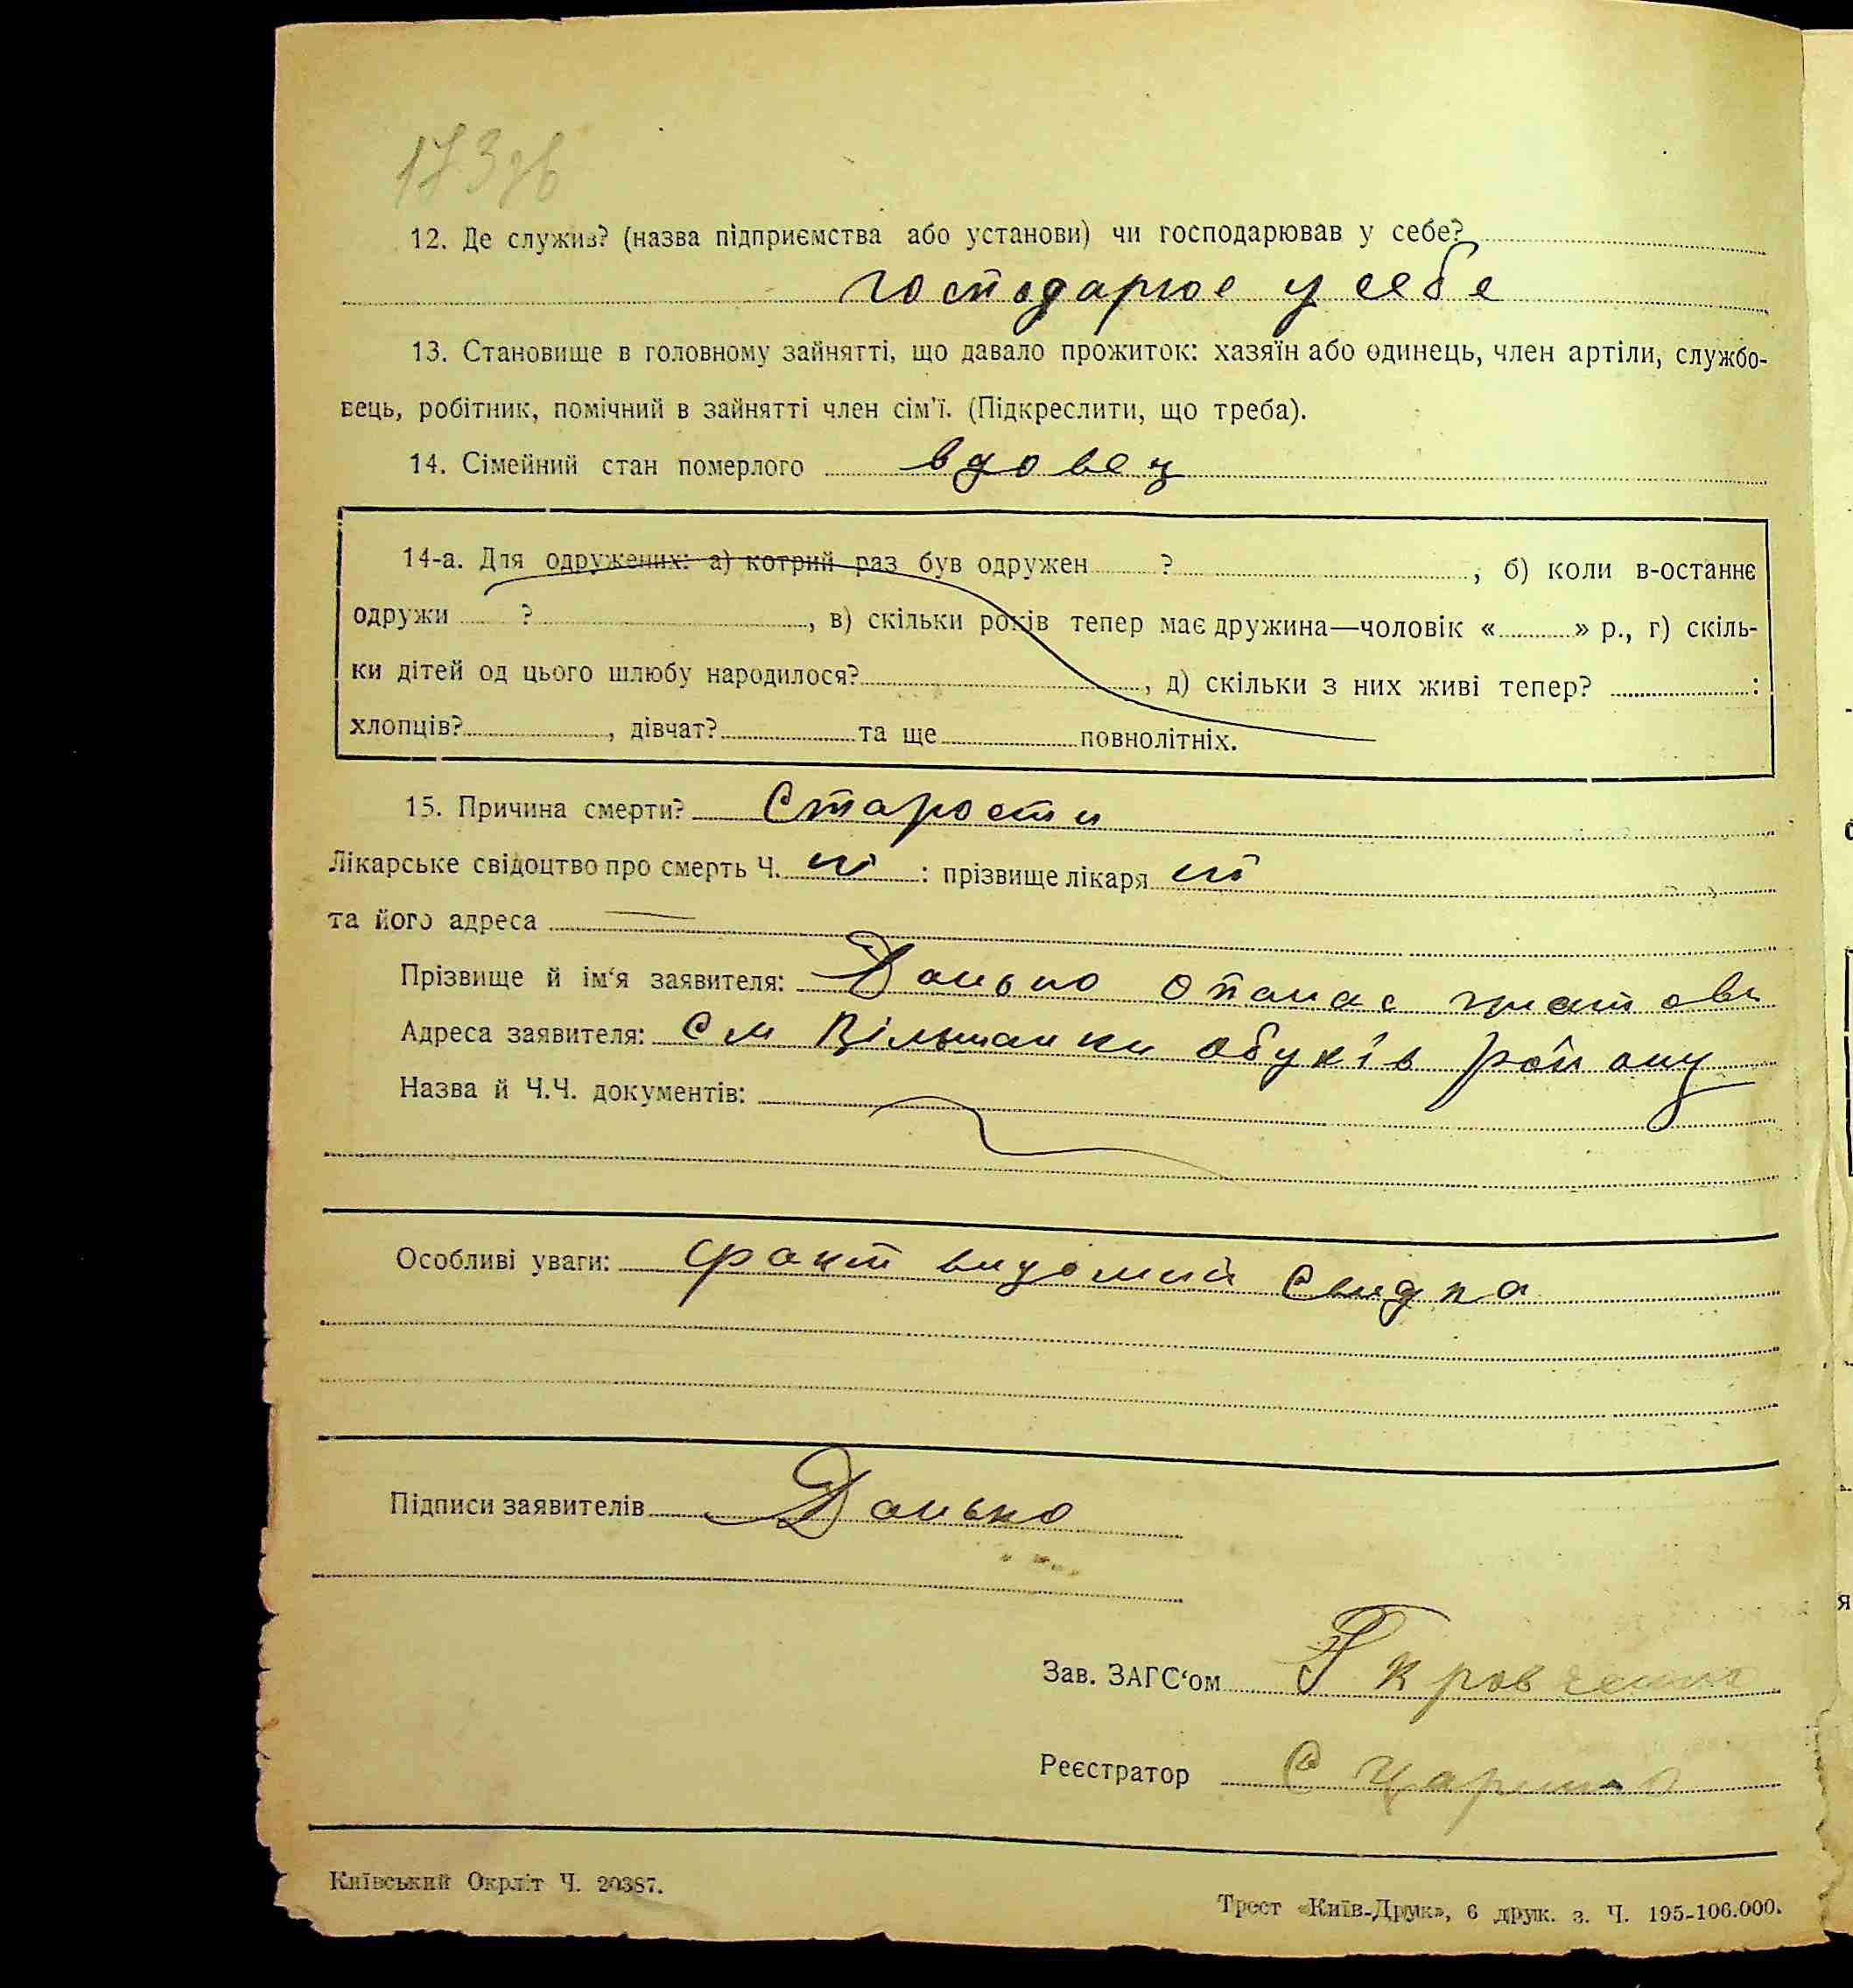 173зв
12. Де служив? (назва підприємства або установи) чи господарював у себе?
господарює у себе
13. Становище в головному зайнятті, що давало прожиток: хазяїн або одинець, член артіли, службо-
вець, робітник, помічний в зайнятті член сім'ї. (Підкреслити, що треба).
14. Сімейний стан померлого вдовец
14-а. Для одружених: а) котрий раз був одружен ? , б) коли в-останнє
одружи ? , в) скільки років тепер має дружина—чоловік « » р., г) скіль-
ки дітей од цього шлюбу народилося? , д) скільки з них живі тепер? :
хлопців? , дівчат? та ще повнолітніх.
15. Причина смерти? Старости
Лікарське свідоцтво про смерть Ч. ні : прізвище лікаря ні
та його адреса —
Прізвище й ім'я заявителя: Данько Опанас
Адреса заявителя: См Вільшанки обухів району
Назва й Ч.Ч. документів:
Особливі уваги: факт видомий Свидка
Підписи заявителів Данько
Зав. ЗАГС'ом Кравченко
Реєстратор С
Київський Окрліт Ч. 20387.
Трест «Київ-Друк», 6 друк. з. Ч. 195-106.000.